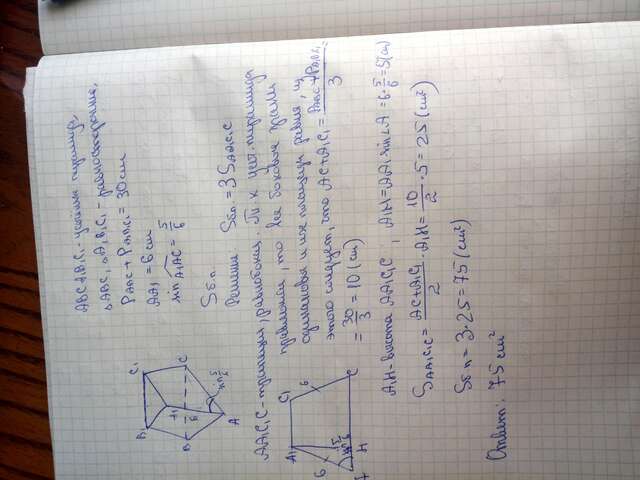 ABCA₁B₁C₁ - усечён. пирамида,
△ABC, △A₁B₁C₁ - равносторонние,
P_ABC + P_A₁B₁C₁ = 30 см
AA₁ = 6 см
sin A₁AC = 5/6
Sб.п.
Решение: Sб.п. = 3S_AA₁C₁C
AA₁C₁C - трапеция, равнобокая. Т. к. усеч. пирамида
правильная, то все боковые грани
одинаковы и их площади равны, из
этого следует, что AC + A₁C₁ = (P_ABC + P_A₁B₁C₁)/3
= 30/3 = 10 (см)
A₁H - высота AA₁C₁C, A₁H = AA₁ · sin∠A = 6 · 5/6 = 5 (см)
S_AA₁C₁C = (AC + A₁C₁)/2 · A₁H = 10/2 · 5 = 25 (см²)
Sб.п. = 3 · 25 = 75 (см²)
Ответ: 75 см²
B₁
C₁
A₁
B
C
A
6
sin 5/6
A₁
C₁
6
6
5/6
H
C